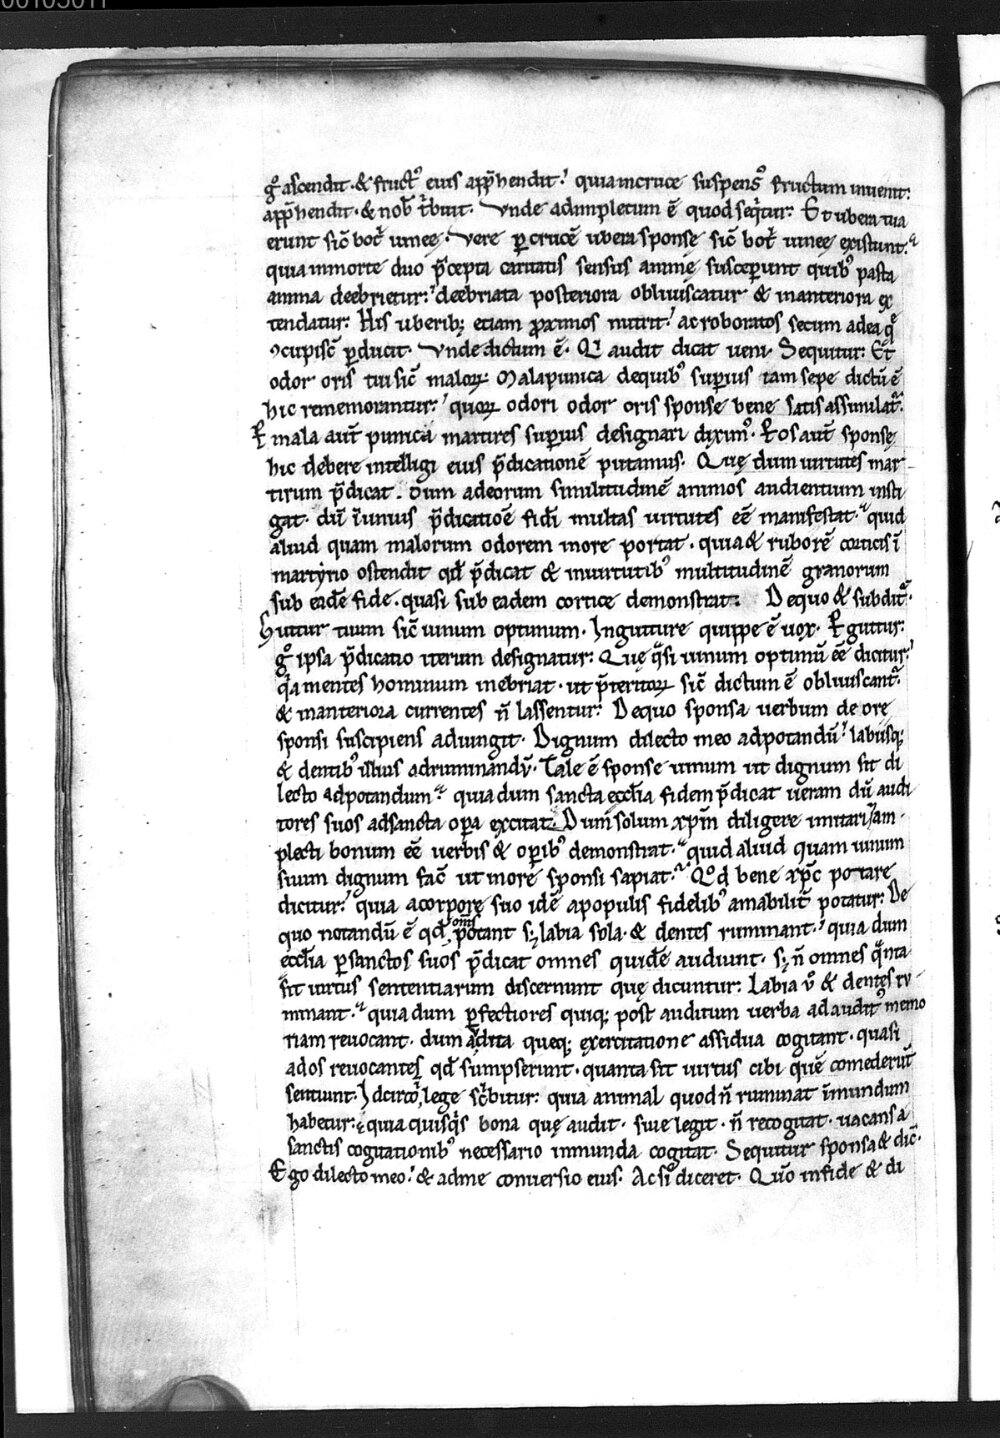 gͦ ascendit · & fruct᷒ eius app̄hendit · quia in cruce suspens᷒ fructum inuenit:
app̄hendit · & nob̄ t̄buit · Vnde adimpletum ē quod seq̄tur: Et ubera tua
erunt sic̄ botˀ uineę · Vere p̱ crucē ubera sponse sic̄ botˀ uineę existunt ·
quia in morte duo p̄cepta caritatis sensus animę susceperunt quib᷒ pasta
anima deebrietur: deebriata posteriora obliuiscatur & in anteriora ex
tendatur: His uberib; etiam ꝓximos nutrit · ac roboratos secum ad ea q̄
ꝯcupisc̄ p̱ducit · Vnde dictum ē · Qͥ audit dicat ueni · Sequitur: Et
odor oris tui sic̄ maloꝝ · Mala punica de quib᷒ sup̱ius iam sepe dictū ē
hic rememorantur: quoꝝ odori odor oris sponse bene satis assimilat᷑.
Per mala aut̄ punica martires sup̱ius designari dixim᷒ · Per os aut̄ sponsę
hic debere intelligi eius p̄dicationē putamus · Quę dum uirtutes mar
tirum p̄dicat · dum ad eorum similitudinē animos audientium insti
gat · dū ī unius p̄dicatiōe fidei multas uirtutes eē manifestat · quid
aliud quam malorum odorem in ore portat · quia & ruborē corticis ī
martyrio ostendit qd̄ p̄dicat & in uirtutib᷒ multitudinē granorum
sub eadē fide · quasi sub eadem cortice demonstrat: De quo & subdit᷑ ·
Guttur tuum sic̄ uinum optimum · In gutture quippe ē uox · Per guttur:
gͦ ipsa p̄dicatio iterum designatur: Quę qͣsi uinum optimū eē dicitur:
qͥa mentes hominum inebriat · ut p̄teritoꝝ sic̄ dictum ē obliuiscant᷑.
& in anteriora currentes n̄ lassentur: De quo sponsa uerbum de ore
sponsi suscipiens adiungit · Dignum dilecto meo ad potandū · labiisq;
& dentib᷒ illius ad ruminandū · Tale ē sponse uinum ut dignum sit di
lecto ad potandum · quia dum sancta ecc̄lia fidem p̄dicat ueram dū audi
tores suos ad sancta op̱a excitat: Dum solum xp̄m diligere imitari am
plecti bonum eē uerbis & op̱ib᷒ demonstrat · quid aliud quam uinum
suum dignum fac̄ ut in ore sponsi sapiat · Qͦd bene xp̄c potare
dicitur: quia a corpore suo idē a populis fidelib᷒ amabilit̄ potatur: De
quo notandū ē qd̄ om̄s potant s; labia sola · & dentes ruminant · quia dum
ecc̄lia p̱ sanctos suos p̄dicat omnes quidē audiunt · s; n̄ omnes qͣnta
sit uirtus sententiarum discernunt quę dicuntur: Labia u̾ & dentes ru
minant · quia dum p̱fectiores quiq; post auditum uerba ad auditꝰ memo
riam reuocant · dum audita queq; exercitatione assidua cogitant · quasi
ad os reuocantes qd̄ sumpserunt · quanta sit uirtus cibi quē comederūt
sentiunt · Idcirco ī lege scͥbitur: quia animal quod n̄ ruminat īmundum
habetur: quia quisqͥs bona quę audit · siue legit · n̄ recogitat · uacans a
sanctis cogitationib᷒ necessario immunda cogitat · Sequitur sponsa & dic̄ ·
Ego dilecto meo · & ad me conuersio eius · Ac si diceret · Qͦm in fide & di